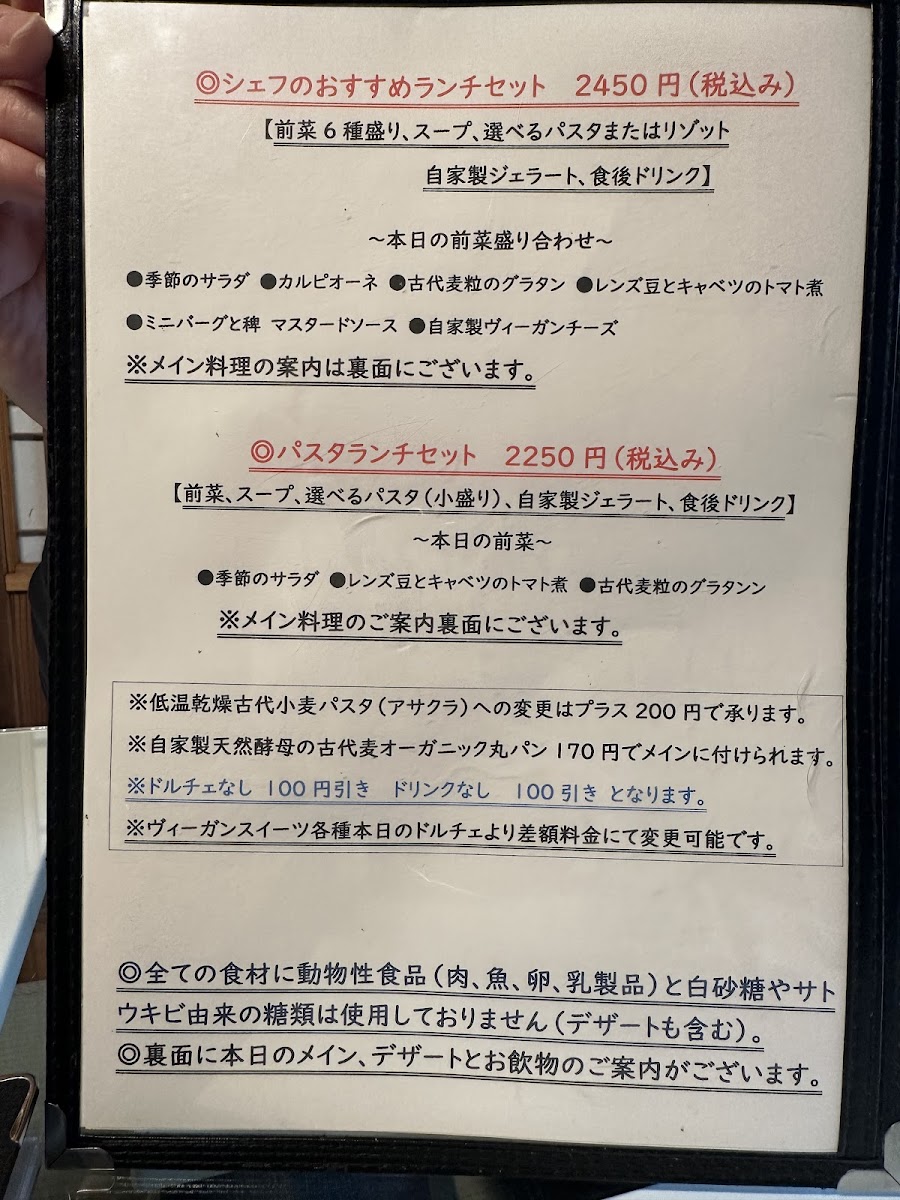 ◎シェフのおすすめランチセット　2450円(税込み)
【前菜6種盛り、スープ、選べるパスタまたはリゾット
自家製ジェラート、食後ドリンク】
～本日の前菜盛り合わせ～
●季節のサラダ ●カルピオーネ ●古代麦粒のグラタン ●レンズ豆とキャベツのトマト煮
●ミニバーグと稗 マスタードソース ●自家製ヴィーガンチーズ
※メイン料理の案内は裏面にございます。
◎パスタランチセット　2250円(税込み)
【前菜、スープ、選べるパスタ(小盛り)、自家製ジェラート、食後ドリンク】
～本日の前菜～
●季節のサラダ ●レンズ豆とキャベツのトマト煮 ●古代麦粒のグラタンン
※メイン料理のご案内裏面にございます。
※低温乾燥古代小麦パスタ(アサクラ)への変更はプラス200円で承ります。
※自家製天然酵母の古代麦オーガニック丸パン170円でメインに付けられます。
※ドルチェなし 100円引き　ドリンクなし　100引き となります。
※ヴィーガンスイーツ各種本日のドルチェより差額料金にて変更可能です。
◎全ての食材に動物性食品(肉、魚、卵、乳製品)と白砂糖やサト
ウキビ由来の糖類は使用しておりません(デザートも含む)。
◎裏面に本日のメイン、デザートとお飲物のご案内がございます。